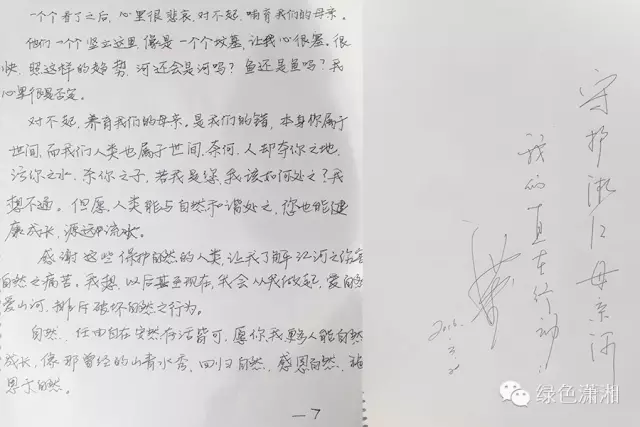 一个个看了之后，心里很悲哀，对不起，哺育我们的母亲。
他们一个个竖立这里，像是一个个坟墓，让我心很塞。很
快，照这样的趋势，河还会是河吗？鱼还是鱼吗？我
心里很是否定。
对不起，养育我们的母亲。是我们的错，本身你属于
世间，而我们人类也属于世间，奈何，人却夺你之地，
污你之水，杀你之子，若我是您，我该如何处之？我
想不通。但愿，人类能与自然和谐处之，您也能健
康成长，源远中流水。
感谢这些保护自然的人类，让我了解江河之伤害
自然之痛苦。我想，以后甚至现在，我会从我做起，爱自然
爱山河，排斥破坏自然之行为。
自然，任由自在安然存活皆可，愿你我更多人能自然
成长，像那曾经的山青水秀，回归自然，感恩自然，
恩于自然。
—7
守护湘江母亲河
我们直在行动
绿色潇湘